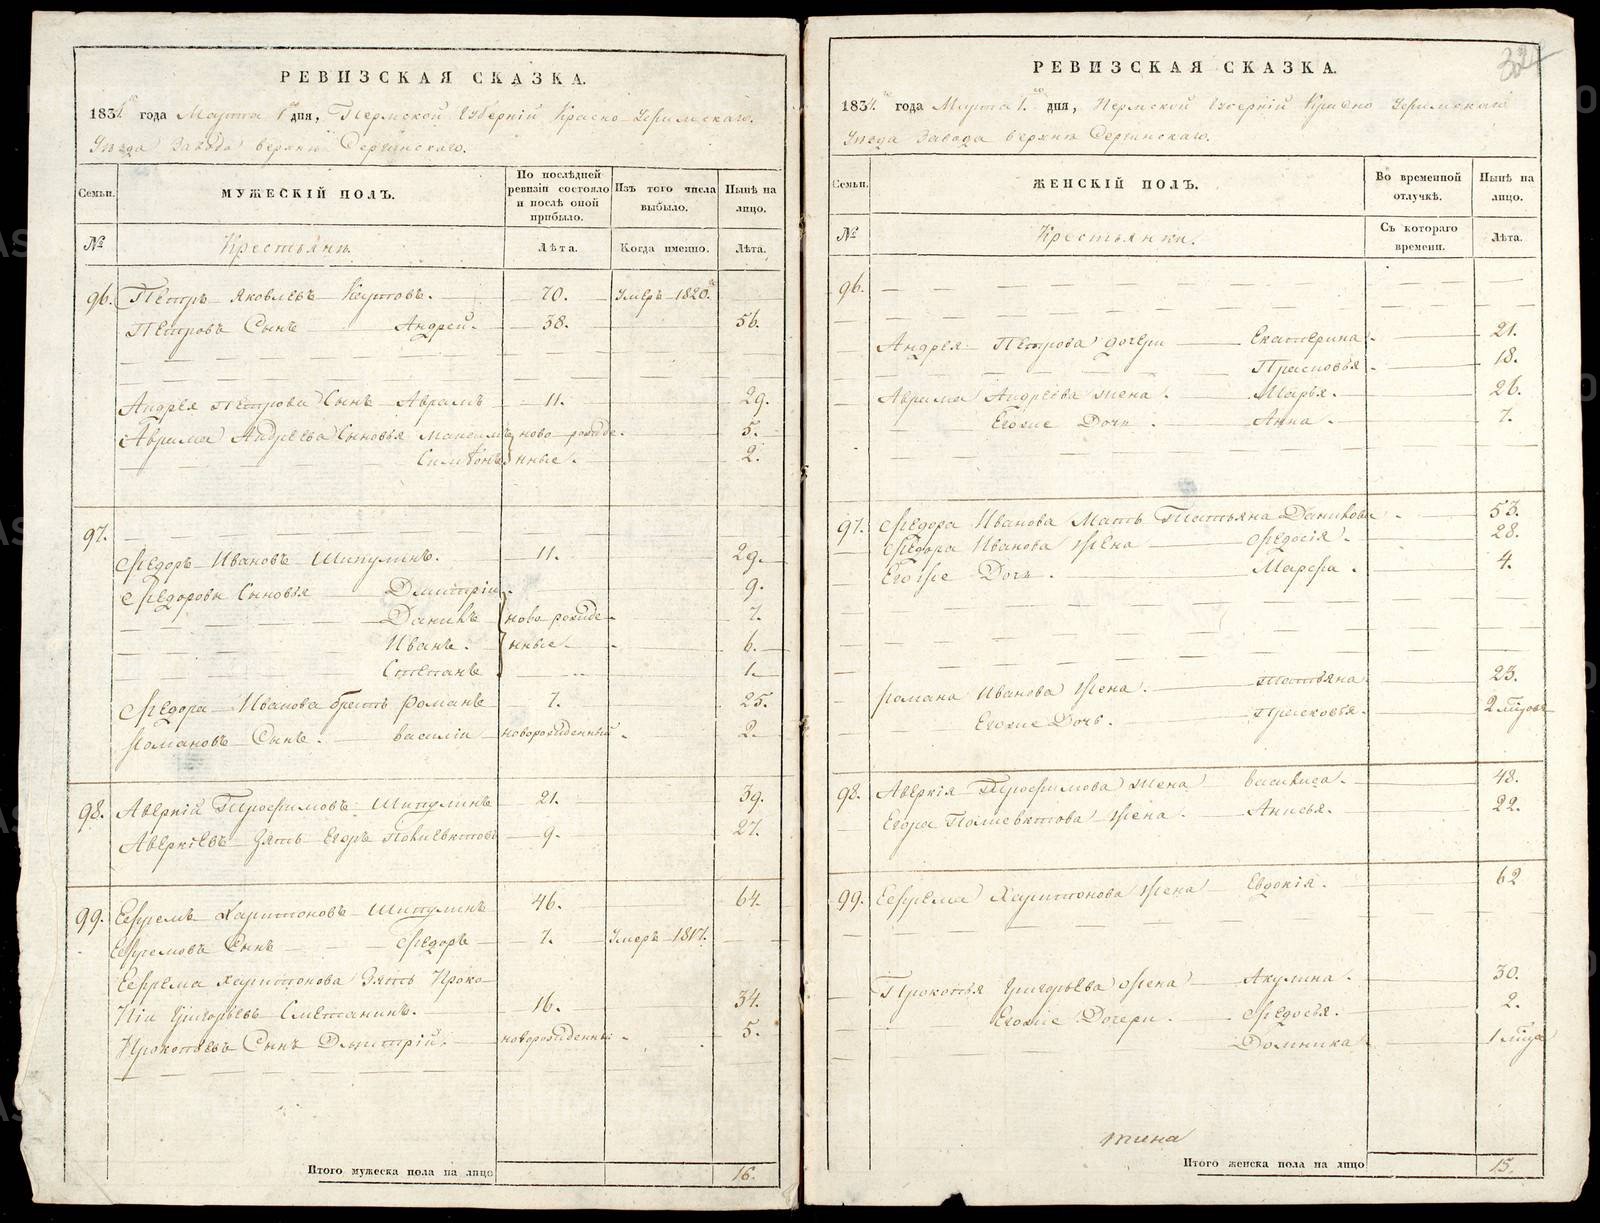 РЕВИЗСКАЯ СКАЗКА.
1834 года Марта 1 дня, Пермской Губерніи Красно Уфимскаго.
Уезда Завода верхне Сергинскаго.
Семьи.
МУЖЕСКІЙ ПОЛЪ.
По послѣдней ревизіи состояло и послѣ оной прибыло.
Изъ того числа выбыло.
Нынѣ на лицо.
№
Крестьяне
Лѣта.
Когда именно.
Лѣта.
96. Петръ Яковлевъ 70. Умеръ 1820.
Петровъ Сынъ Андрей 38. 56.
Андрея Петрова Сынъ Аврамъ 11. 29.
Аврама Андреева Сыновья Максимъ ново рожде 5.
Симіонъ нные. 2.
97.
Ѳедоръ Ивановъ Шипулинъ. 11. 29.
Ѳедоровы Сыновья Дмитріи 9.
Данило ново рожде 7.
Иванъ. нные 6.
Степанъ 1.
Ѳедора Иванова братъ Романъ 7. 25.
Романовъ Сынъ. василіи новорожденный 2.
98. Аверкій Трофимовъ Шипулинъ 21. 39.
Аверкіевъ Зять Егоръ 9. 27.
99. Ефремъ Харитоновъ Шипулинъ 46. 64.
Ефремовъ Сынъ Ѳедоръ 7. Умеръ 1817.
Ефрема Харитонова Зять Проко
піи Григорьевъ Сметанинъ. 16. 34.
Прокопьевъ Сынъ Дмитрій. новорожденны 5.
Итого мужеска пола на лицо 16.
324
РЕВИЗСКАЯ СКАЗКА.
1834 года Марта 1 дня, Пермской Губерніи Красно Уфимскаго
Уезда Завода верхне Сергинскаго.
Семьи.
ЖЕНСКІЙ ПОЛЪ.
Во временной отлучкѣ.
Нынѣ на лицо.
№
Крестьянки.
Съ котораго времени.
Лѣта.
96.
Андрея Петрова дочери Екатерина 21.
Прасковья 18.
Аврама Андреева жена. Марья. 26.
Егоже Дочь. Анна. 7.
97. Ѳедора Иванова Мать Татьяна Данилова 53.
Ѳедора Иванова Жена Ѳедосія. 28.
Егоже Дочь. Марфа. 4.
Романа Иванова Жена. Татьяна 23.
Егоже Дочь. Прасковья. 2
98. Аверкія Трофимова жена василиса. 48.
Егора Жена. Анисья. 22.
99. Ефрема Харитонова Жена Евдокія. 62
Прокопья Григорьева Жена Акулина. 30.
Егоже Дочери. Ѳедосья. 2.
Домника 1
Итого женска пола на лицо 15.